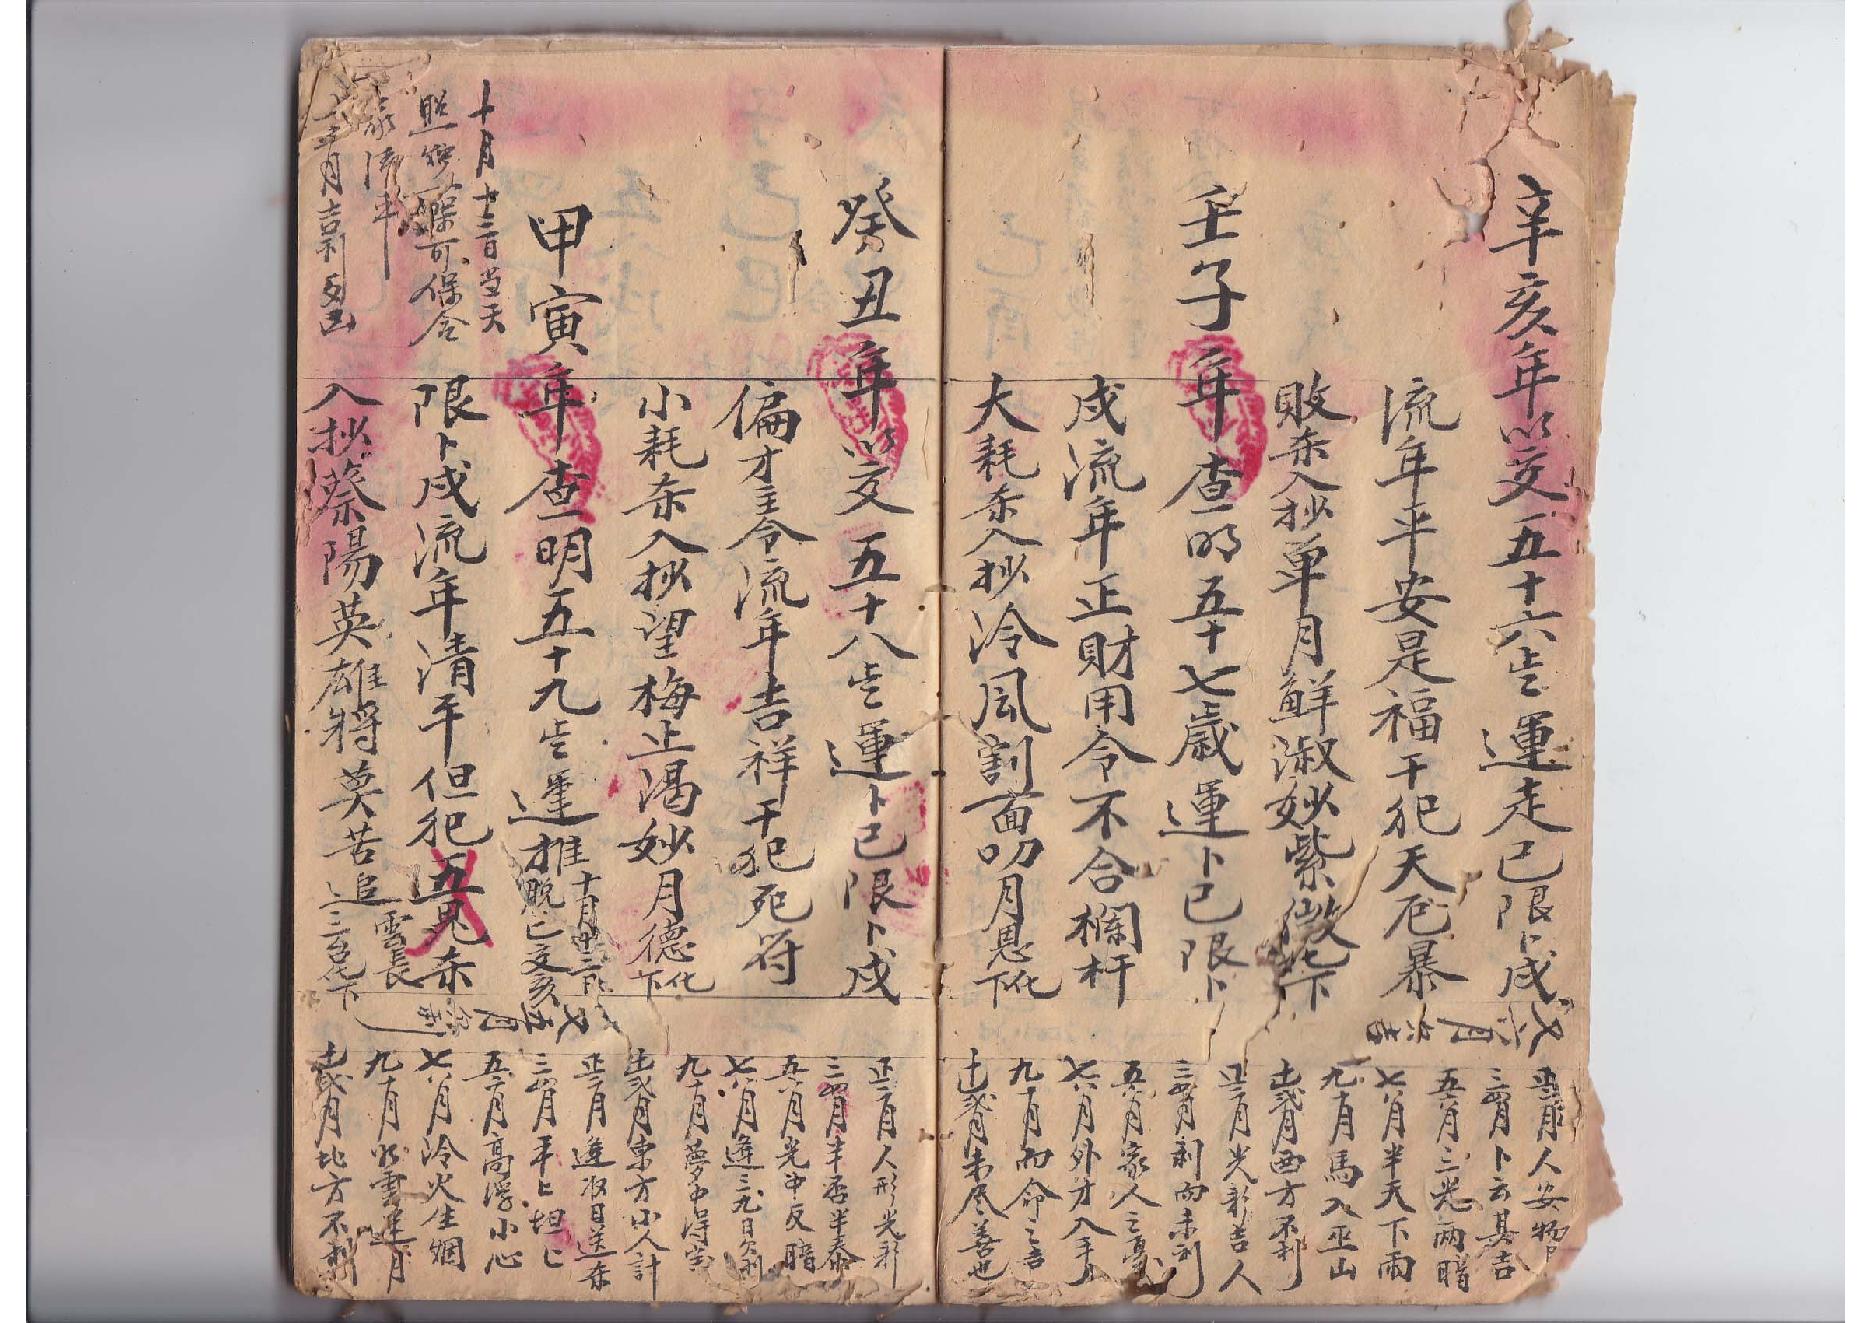 辛亥年以交五十六岁運走巳限卜戌
流年平安是福干犯天厄暴
敗杀入抄单月鮮淑妙紫微化下
六月
壬子年查明五十七歲運卜巳限卜
戌流年正財用令不合欄杆
大耗杀入抄冷風割面叨月恩化下
癸丑年以交五十八岁運卜巳限卜戌
偏才主令流年吉祥干犯死符
小耗杀入抄望梅止渴妙月德化下
甲寅年查明五十九岁運推脱巳交亥
限卜戌流年清平但犯五鬼杀
雲長
入抄蔡陽英雄將莫苦追
十月十二日当天
照 可保全
流年
月吉利
月人安物
三四月卜云其吉
五六月三光兩暗
七八月半天下雨
九十月馬入巫山
十一弍月西方不利
正二月光彩吉人
三四月剥而未利
五六月家人之憂
七八月外才入手
九十月而命之吉
十一弍月未尽善也
正二月人形光彩
三四月半否半泰
五六月光中反暗
七八月逢三九日欠利
九十月夢中得宝
十一弍月東方小人計
正二月進 日送杀
三四月平上坦上
五六月高浮小心
七八月冷火生烟
九十月 雲逢月
十一弍月地方不利